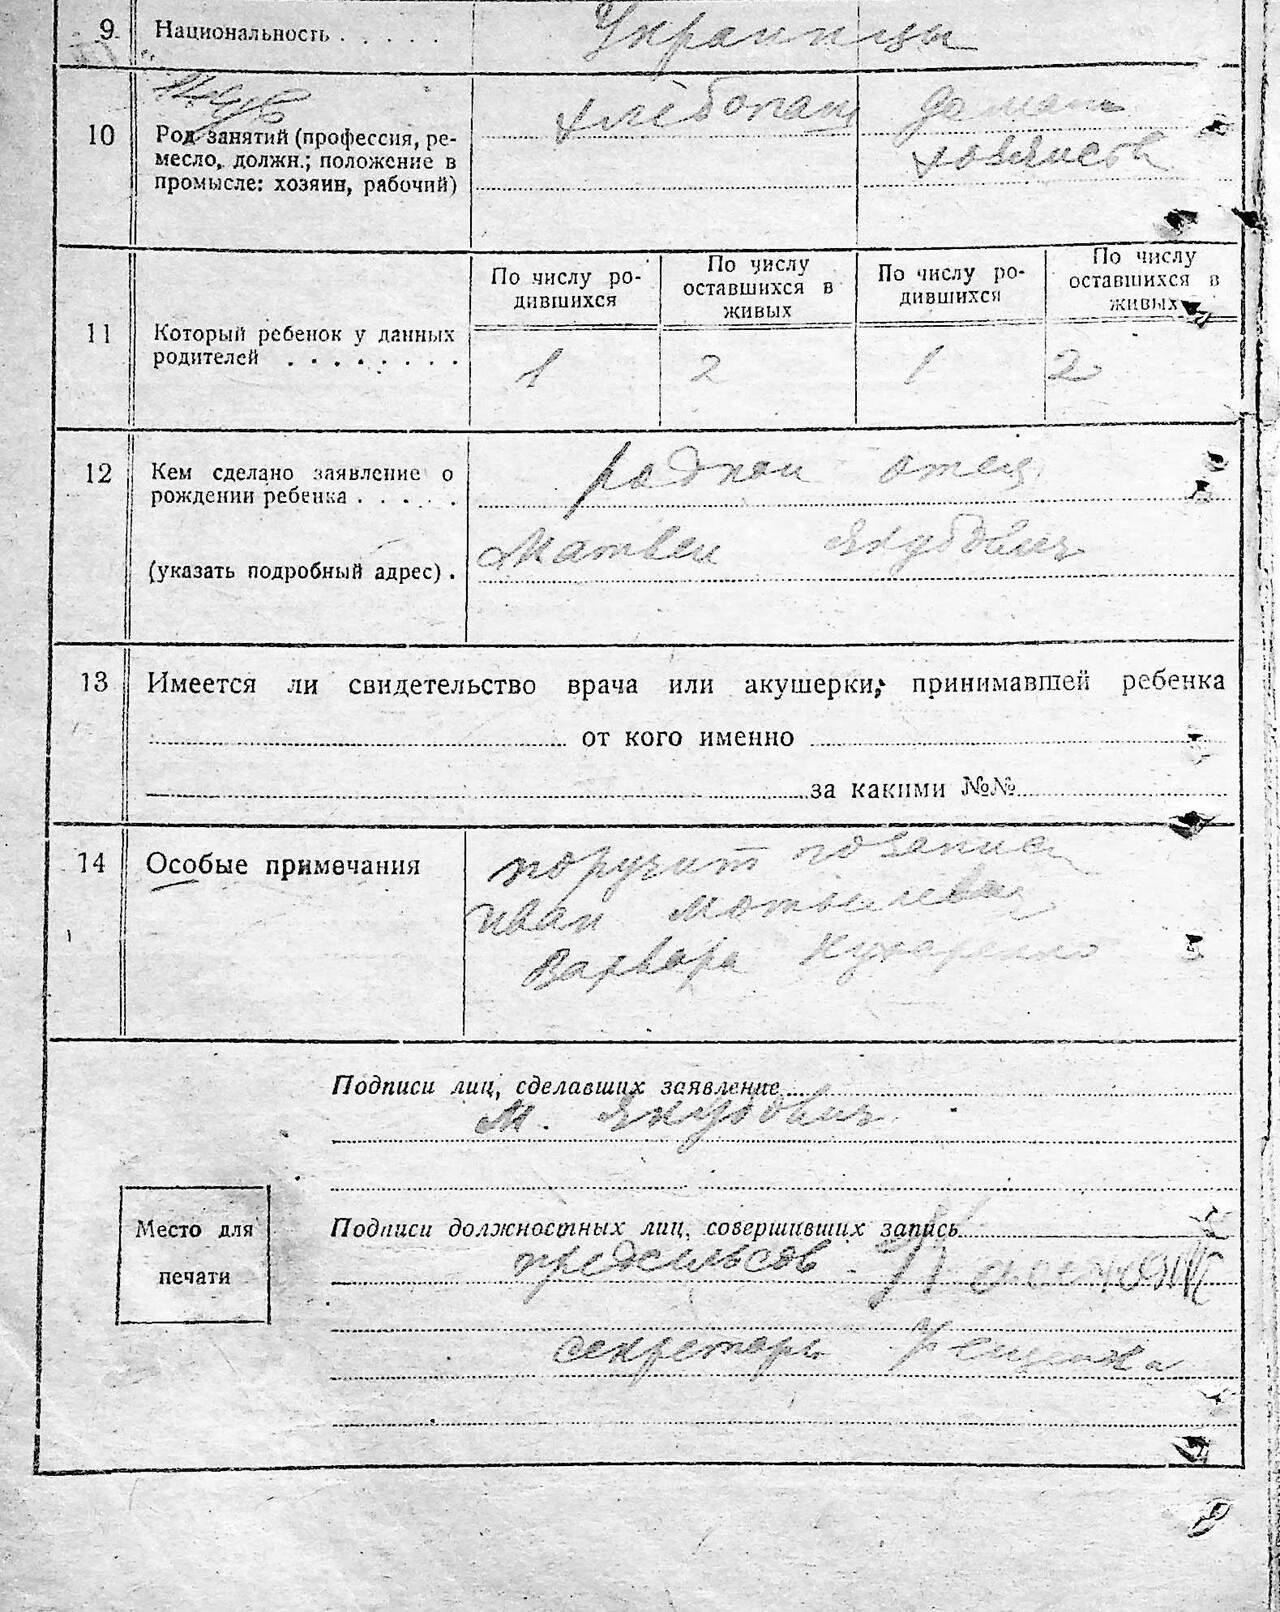 9 Национальность . . . . . Украинцы
10 Род занятий (профессия, ре-
месло, должн.; положение в
промысле: хозяин, рабочий)
хлебопаш домаш
хозяйств
11 Который ребенок у данных
родителей . . . . . . . .
По числу ро-
дившихся
По числу
оставшихся в
живых
По числу ро-
дившихся
По числу
оставшихся в
живых
1 2 1 2
12 Кем сделано заявление о
рождении ребенка . . . . .
родной отец
(указать подробный адрес) .
Матвей Якубович
13 Имеется ли свидетельство врача или акушерки, принимавшей ребенка
от кого именно
за какими №№
14 Особые примечания
поручит
Иван
Варвара Кухаренко
Подписи лиц, сделавших заявление
М. Якубович
Подписи должностных лиц, совершивших запись
предсельсов.
секретарь
Место для
печати
8